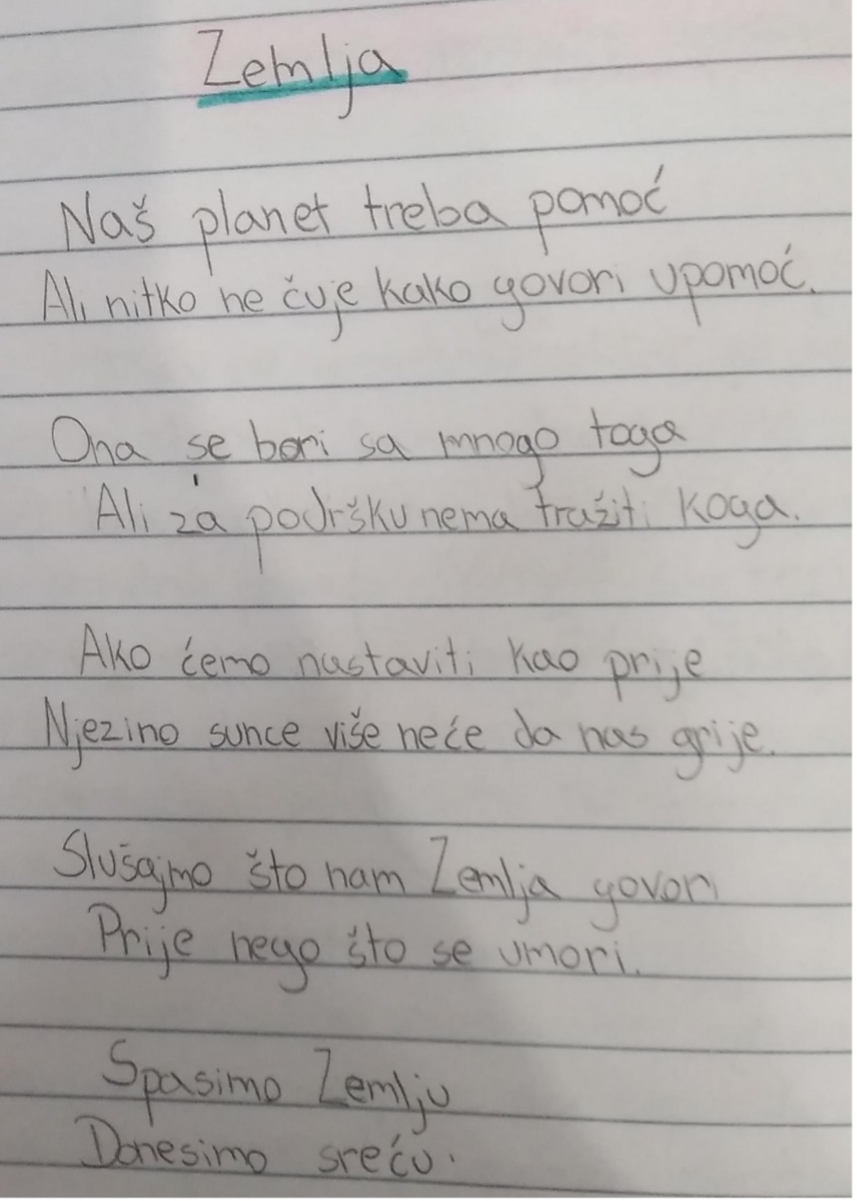 Zemlja
Naš planet treba pomoć
Ali nitko ne čuje kako govori upomoć.
Ona se bori sa mnogo toga
Ali za podršku nema tražiti koga.
Ako ćemo nastaviti kao prije
Njezino sunce više neće da nas grije.
Slušajmo što nam Zemlja govori
Prije nego što se umori.
Spasimo Zemlju
Donesimo sreću.